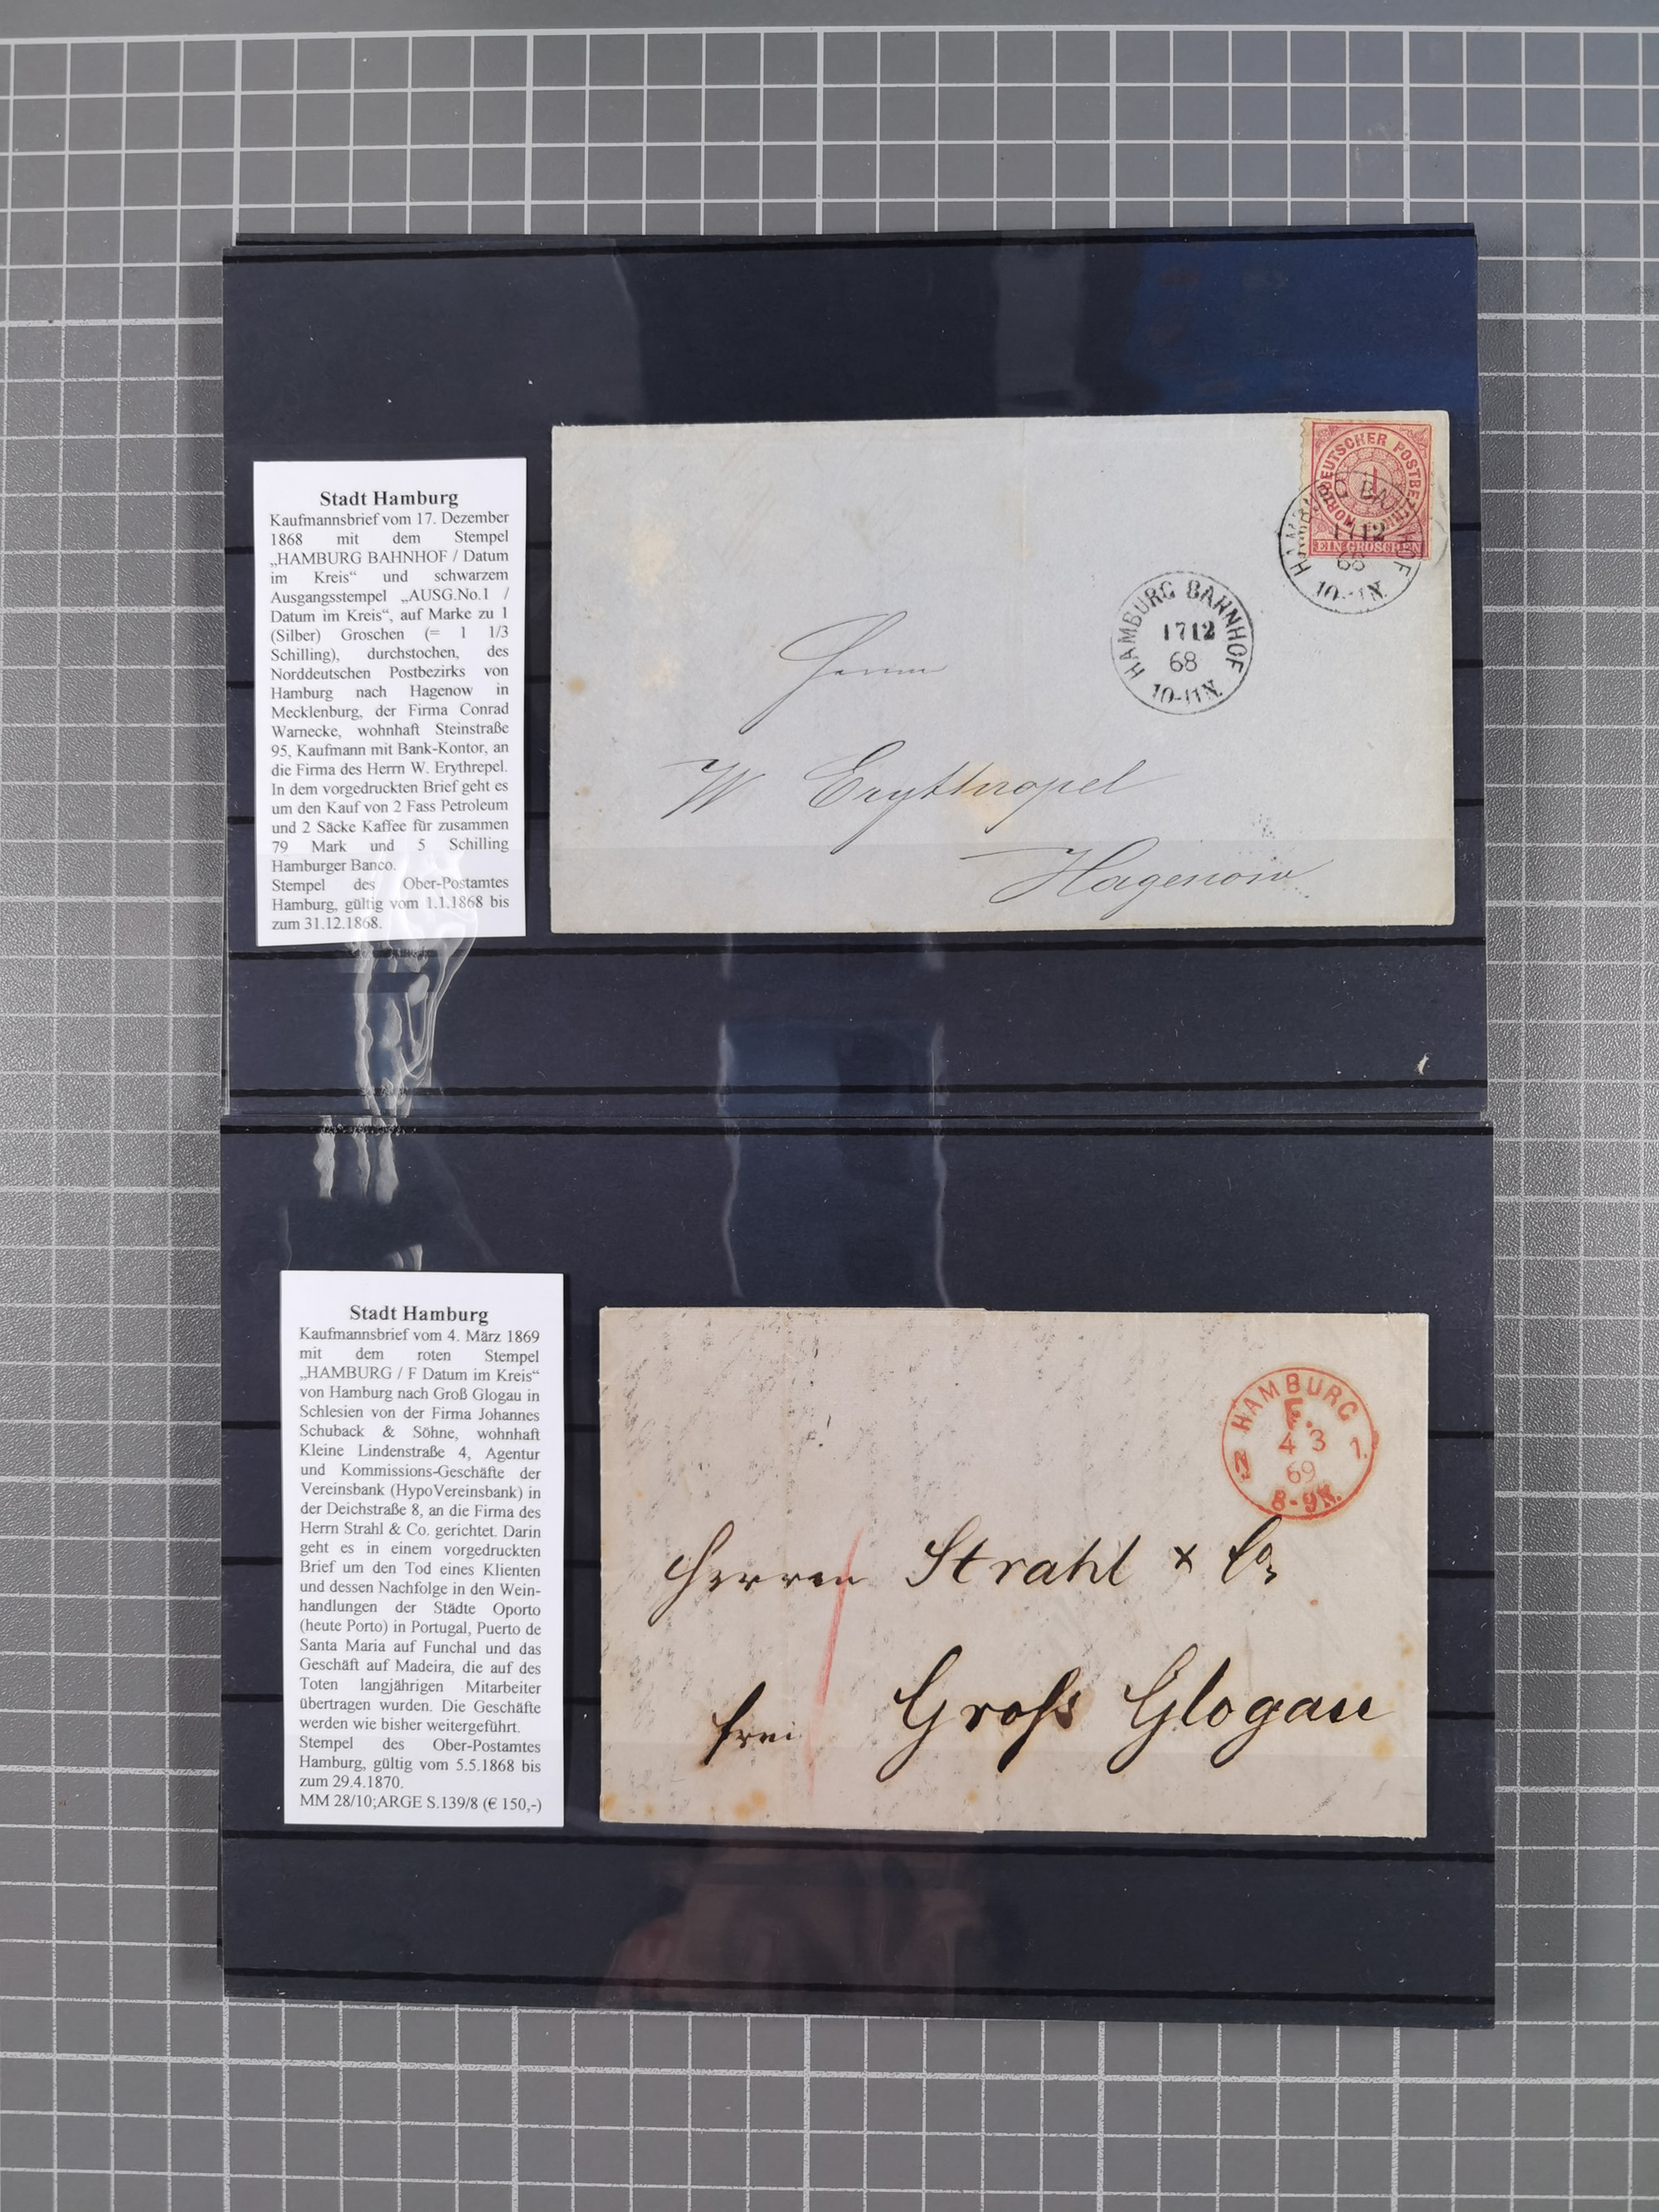 Stadt Hamburg
Kaufmannsbrief vom 17. Dezember
1868 mit dem Stempel
„HAMBURG BAHNHOF / Datum
im Kreis“ und schwarzem
Ausgangsstempel „AUSG.No.1 /
Datum im Kreis“, auf Marke zu 1
(Silber) Groschen (= 1 1/3
Schilling), durchstochen, des
Norddeutschen Postbezirks von
Hamburg nach Hagenow in
Mecklenburg, der Firma Conrad
Warnecke, wohnhaft Steinstraße
95, Kaufmann mit Bank-Kontor, an
die Firma des Herrn W. Erythrepel.
In dem vorgedruckten Brief geht es
um den Kauf von 2 Fass Petroleum
und 2 Säcke Kaffee für zusammen
79 Mark und 5 Schilling
Hamburger Banco.
Stempel des Ober-Postamtes
Hamburg, gültig vom 1.1.1868 bis
zum 31.12.1868.
NORDDEUTSCHER POSTBEZIRK
1
EIN GROSCHEN
HAMBURG BAHNHOF
17 12
68
10-11 N.
HAMBURG BAHNHOF
17 12
68
10-11 N.
Herrn
W Erythropel
Hagenow
Stadt Hamburg
Kaufmannsbrief vom 4. März 1869
mit dem roten Stempel
„HAMBURG / F Datum im Kreis“
von Hamburg nach Groß Glogau in
Schlesien von der Firma Johannes
Schuback & Söhne, wohnhaft
Kleine Lindenstraße 4, Agentur
und Kommissions-Geschäfte der
Vereinsbank (HypoVereinsbank) in
der Deichstraße 8, an die Firma des
Herrn Strahl & Co. gerichtet. Darin
geht es in einem vorgedruckten
Brief um den Tod eines Klienten
und dessen Nachfolge in den Wein-
handlungen der Städte Oporto
(heute Porto) in Portugal, Puerto de
Santa Maria auf Funchal und das
Geschäft auf Madeira, die auf des
Toten langjährigen Mitarbeiter
übertragen wurden. Die Geschäfte
werden wie bisher weitergeführt.
Stempel des Ober-Postamtes
Hamburg, gültig vom 5.5.1868 bis
zum 29.4.1870.
MM 28/10;ARGE S.139/8 (€ 150,-)
HAMBURG
F.
4 3
N 1.
69
8-9 N.
Herren Strahl & Co
frei Groß Glogau